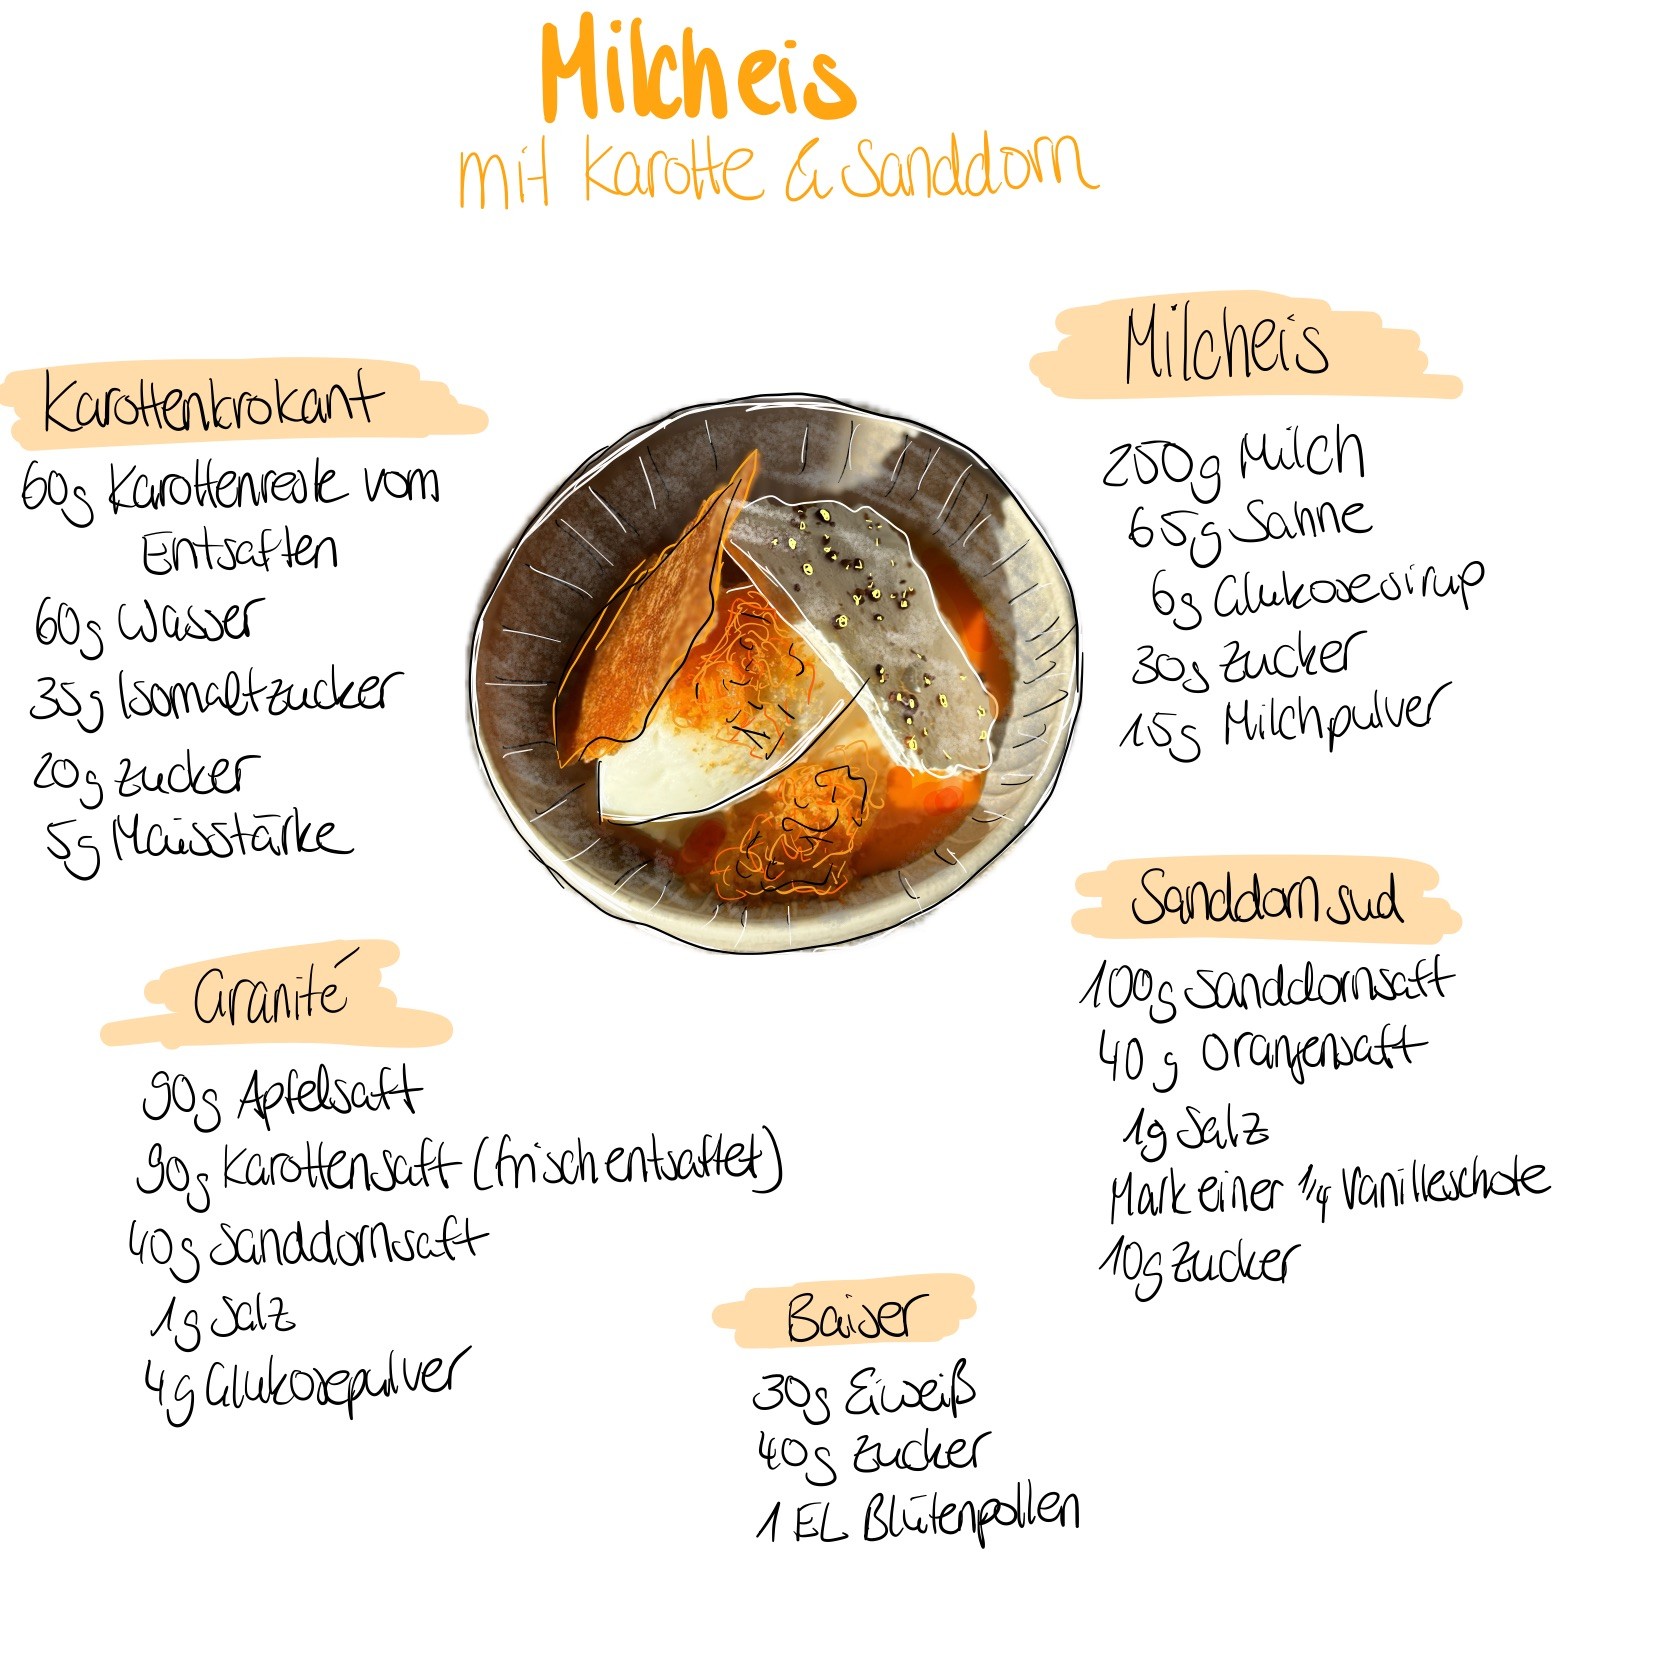 Milcheis
mit Karotte & Sanddorn
Karottenkrokant
60g Karottenreste vom
Entsaften
60g Wasser
35g Isomaltzucker
20g Zucker
5g Maisstärke
Granité
90g Apfelsaft
90g Karottensaft (frisch entsaftet)
40g Sanddornsaft
1g Salz
4g Glukosepulver
Milcheis
250g Milch
65g Sahne
6g Glukosesirup
30g Zucker
15g Milchpulver
Sanddornsud
100g Sanddornsaft
40g Orangensaft
1g Salz
Mark einer 1/4 Vanilleschote
10g Zucker
Baiser
30g Eiweiß
40g Zucker
1 EL Blütenpollen